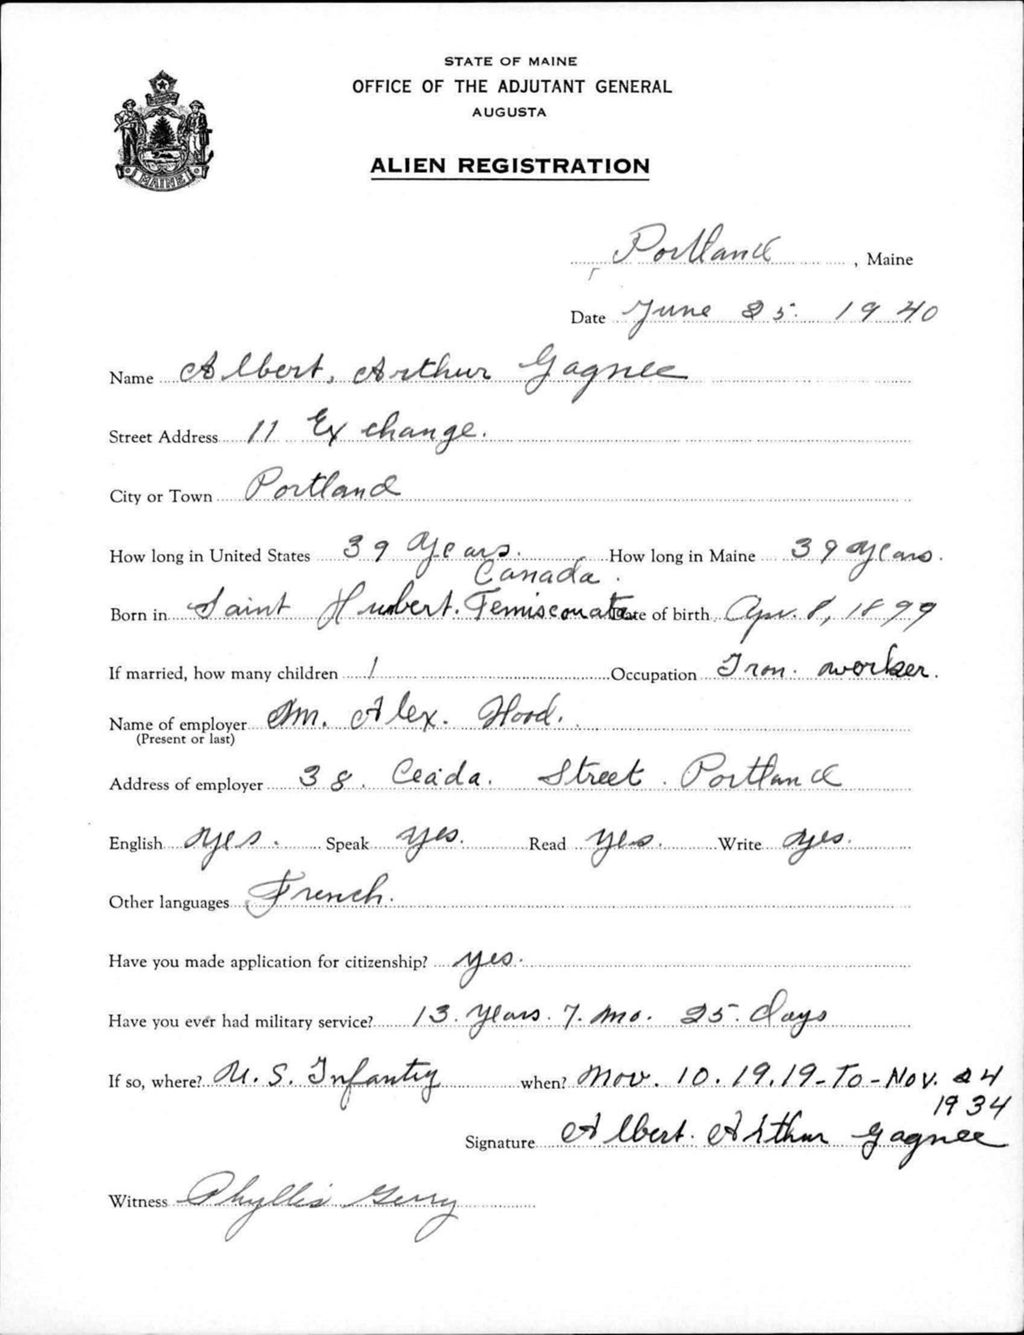 STATE OF MAINE
OFFICE OF THE ADJUTANT GENERAL
AUGUSTA
MAINE
ALIEN REGISTRATION
Portland, Maine
Date June 25. 1940
Name Albert, Arthur Gagnee
Street Address 11 Exchange.
City or Town Portland
How long in United States 39 Years. How long in Maine 39 years.
Canada.
Born in Saint Hubert. Temisconata Date of birth Apr. 8, 1899
If married, how many children 1 Occupation Iron. worker.
Name of employer Mr. Alex. Hood.
(Present or last)
Address of employer 38. Street. Portland
English yes. Speak yes. Read yes. Write yes.
Other languages French.
Have you made application for citizenship? yes.
Have you ever had military service? 13. years. 7. mo. 25. days
If so, where? U. S. Infantry when? Nov. 10. 19.19-To-Nov. 24
1934
Signature Albert. Arthur Gagnee
Witness Phyllis Gerry